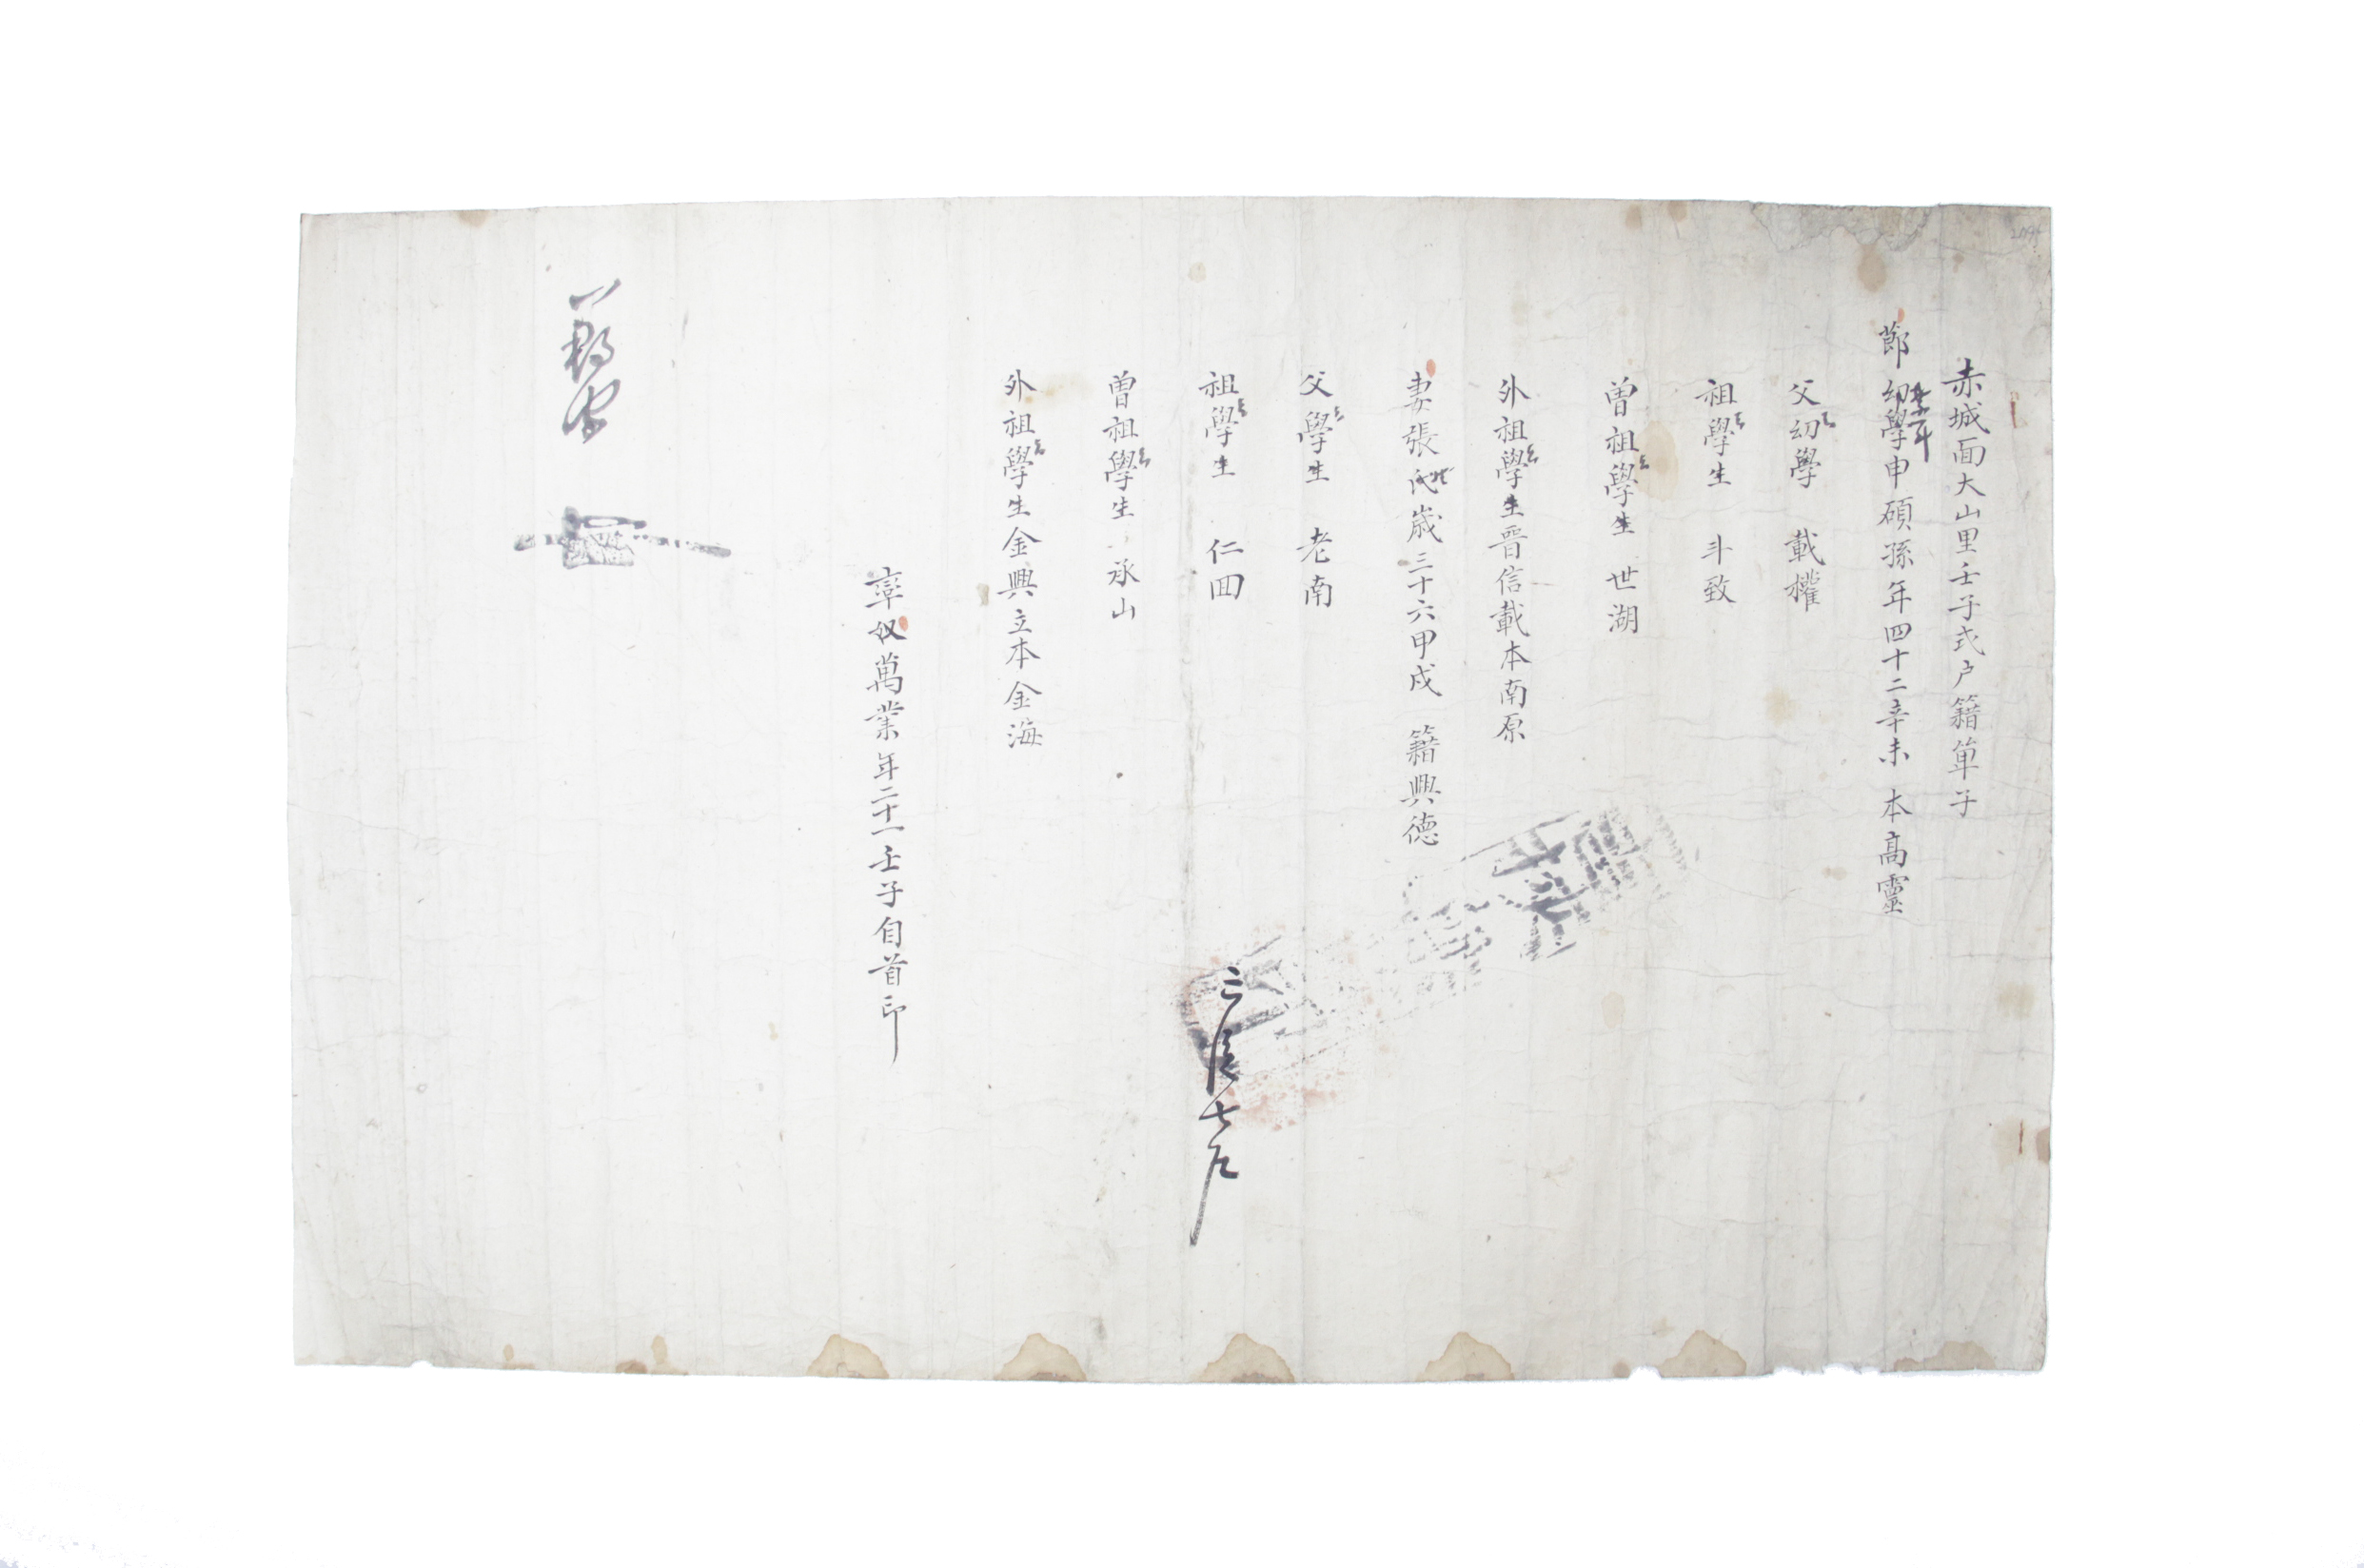 赤城面大山里壬子式户籍单子
節幼學申碩孫年四十二辛未 本高靈
父幼學 載權
祖學生 斗致
曾祖學生 世湖
外祖學生晋信載本南原
妻張氏歲三十六甲戌 籍興德
父學生 老南
祖學生 仁囬
曾祖學生 承山
外祖學生金興立本金海
率奴萬業年二十一壬子自首印
三 七戶